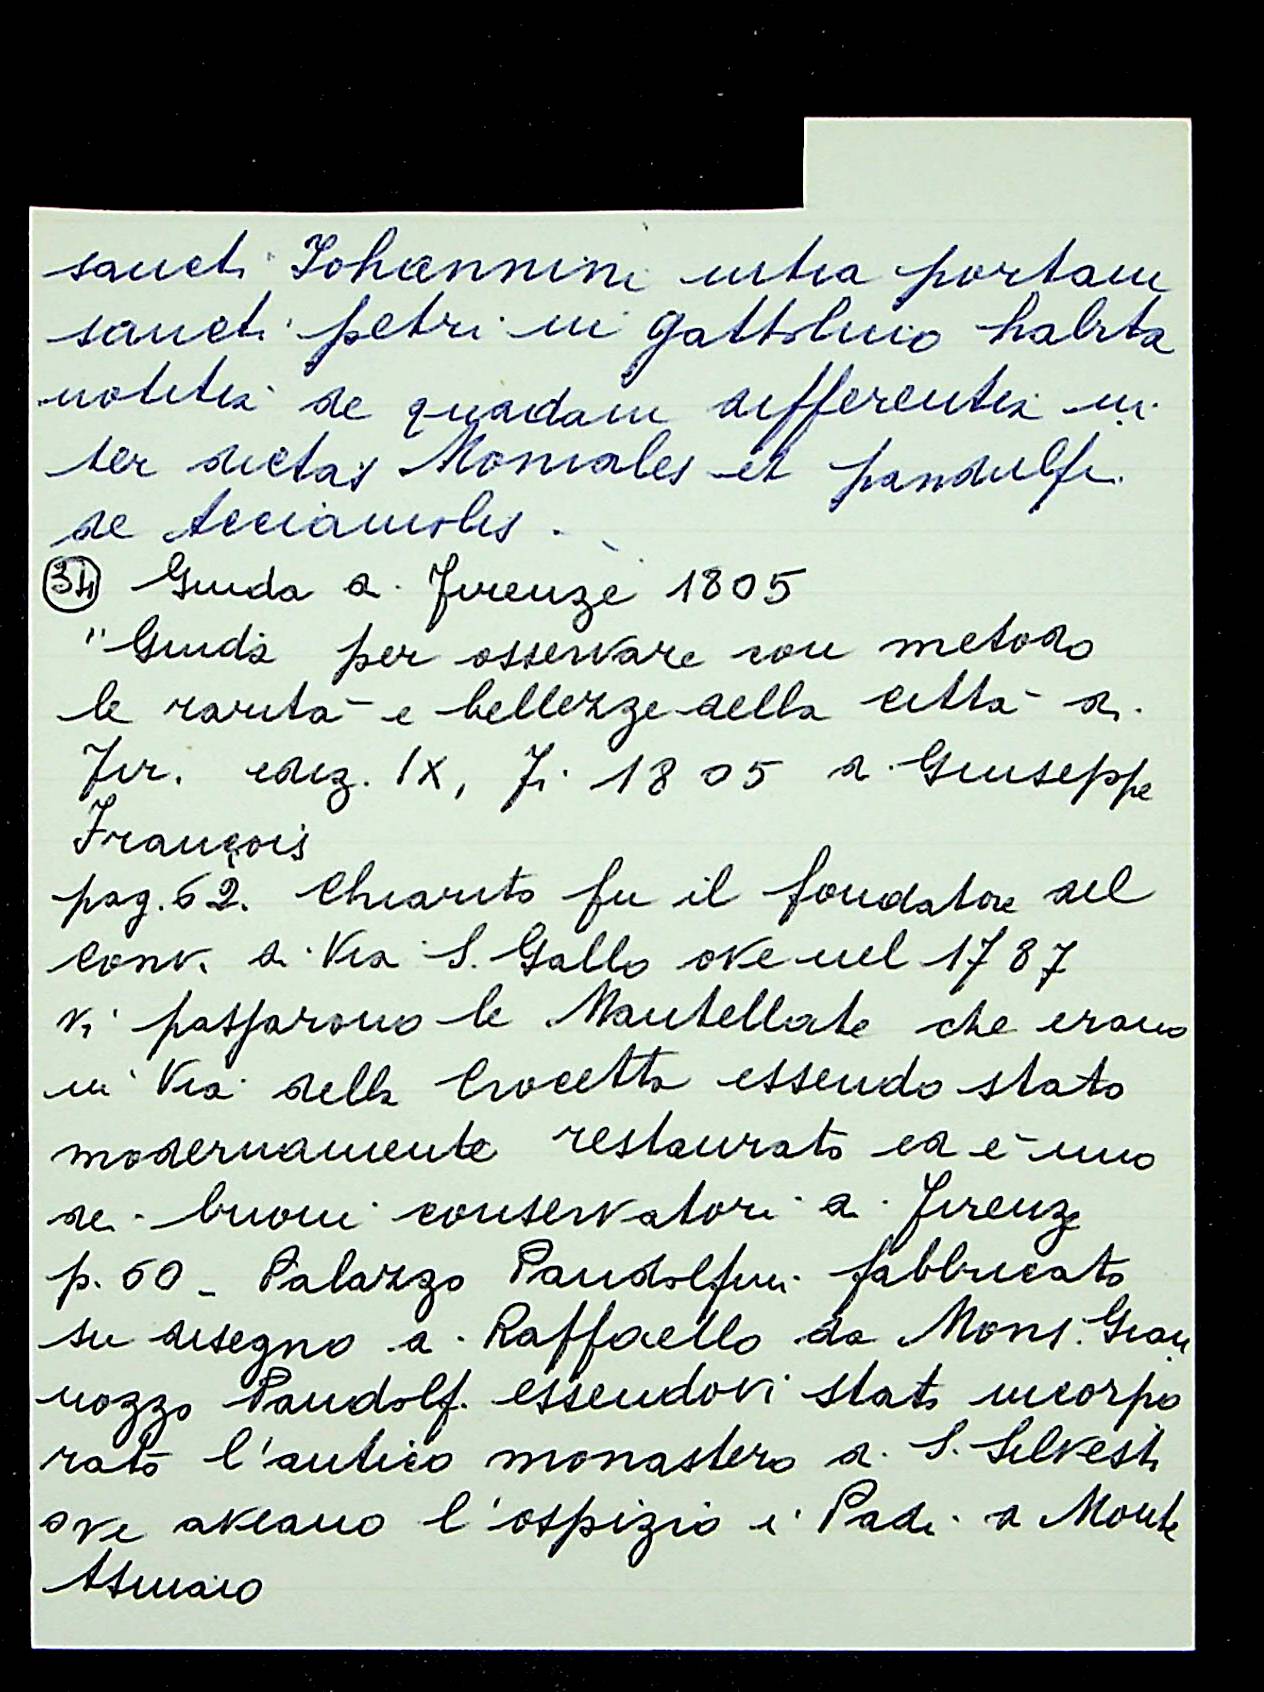 sancti Johannini intra portam
sancti petri in gattolino habita
notitia de quadam differentia in
ter dictas Moniales et pandulfi
de Acciaiuolis.
34 Guida di Firenze 1805
"Guida per osservare con metodo
le rarità e bellezze della città di
Fir. ediz. IX, Fi. 1805 di Giuseppe
François
pag. 62. Chiarito fu il fondatore del
conv. di Via S. Gallo ove nel 1787
vi passarono le Mantellate che erano
in Via della Crocetta essendo stato
modernamente restaurato ed è uno
dei buoni conservatori di Firenze
p. 60 - Palazzo Pandolfini fabbricato
su disegno di Raffaello da Mons. Gian
nozzo Pandolf. essendovi stato incorpo
rato l'antico monastero di S. Silvestr
ove aveano l'ospizio i Padri di Monte
Asinaio